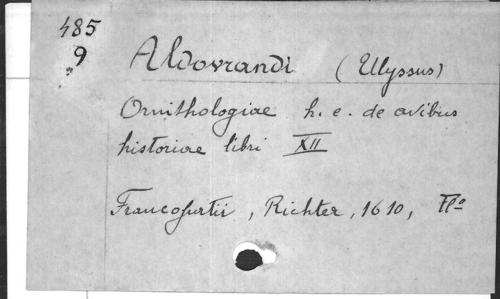 485
9
Aldovrandi (Ulyssus)
Ornithologiae h. e. de avibus
historiae libri XII
Francofurtii, Richter, 1610, Fo